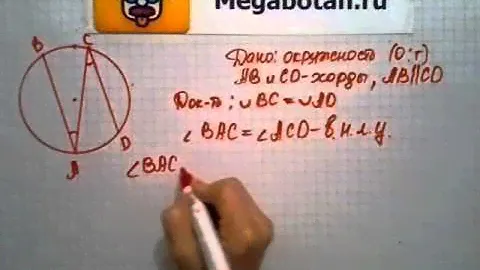 Megabotan.ru
B
C
Дано: окружность (O;r)
AB и CD-хорды, AB||CD
Док-ть: ∪BC=∪AD
∠BAC=∠ACD-в.н.л.у.
D
A
∠BAC